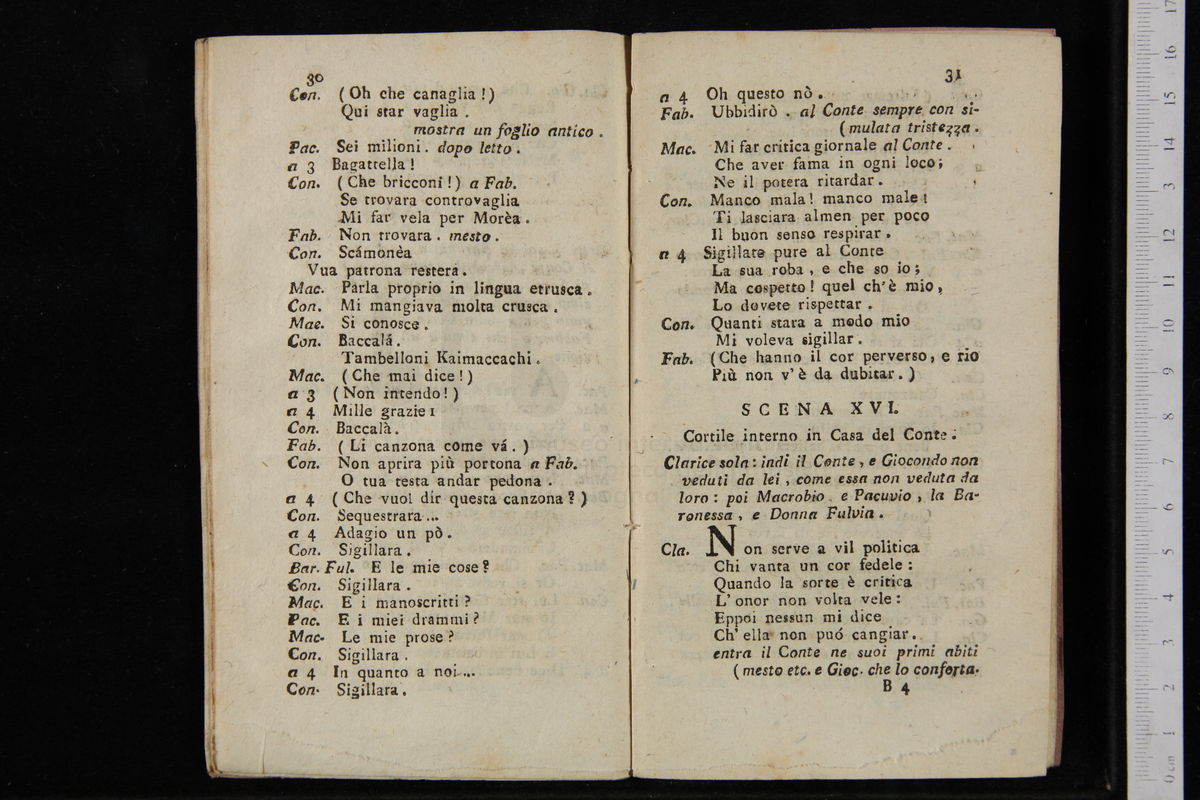 30
Con. (Oh che canaglia!)
Qui star vaglia.
mostra un foglio antico.
Pac. Sei milioni. dopo letto.
a 3 Bagattella!
Con. (Che bricconi!) a Fab.
Se trovara controvaglia
Mi far vela per Morèa.
Fab. Non trovara. mesto.
Con. Scámonèa
Vua patrona restera.
Mac. Parla proprio in lingua etrusca.
Con. Mi mangiava molta crusca.
Mac. Si conosce.
Con. Baccalá.
Tambelloni Kaimaccachi.
Mac. (Che mai dice!)
a 3 (Non intendo!)
a 4 Mille grazie!
Con. Baccalà.
Fab. (Li canzona come vá.)
Con. Non aprira più portona a Fab.
O tua testa andar pedona.
a 4 (Che vuol dir questa canzona?)
Con. Sequestrara...
a 4 Adagio un pò.
Con. Sigillara.
Bar. Ful. E le mie cose?
Con. Sigillara.
Mac. E i manoscritti?
Pac. E i miei drammi?
Mac. Le mie prose?
Con. Sigillara.
a 4 In quanto a noi...
Con. Sigillara.
31
a 4 Oh questo nò.
Fab. Ubbidirò. al Conte sempre con si-
(mulata tristezza.
Mac. Mi far critica giornale al Conte.
Che aver fama in ogni loco;
Ne il potera ritardar.
Con. Manco mala! manco male!
Ti lasciara almen per poco
Il buon senso respirar.
a 4 Sigillate pure al Conte
La sua roba, e che so io;
Ma cospetto! quel ch'è mio,
Lo dovete rispettar.
Con. Quanti stara a modo mio
Mi voleva sigillar.
Fab. (Che hanno il cor perverso, e rio
Più non v'è da dubitar.)
SCENA XVI.
Cortile interno in Casa del Conte.
Clarice sola: indi il Conte, e Giocondo non
veduti da lei, come essa non veduta da
loro: poi Macrobio e Pacuvio, la Ba-
ronessa, e Donna Fulvia.
Cla. Non serve a vil politica
Chi vanta un cor fedele:
Quando la sorte è critica
L'onor non volta vele:
Eppoi nessun mi dice
Ch'ella non puó cangiar.
entra il Conte ne suoi primi abiti
(mesto etc. e Gioc. che lo conforta.
B 4